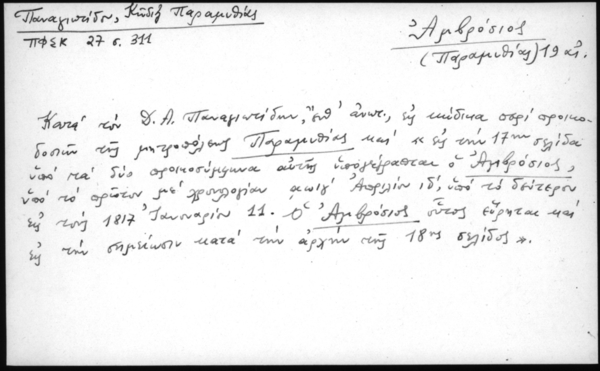 Παναγιωτίδου, Κῶδιξ Παραμυθίας
ΠΦΣΚ 27 σ. 311
Ἀμβρόσιος
(Παραμυθίας) 19 αἰ.
Κατά τόν Δ. Α. Παναγιωτίδην, ἔνθ' ἀνωτ., εἰς κώδικα περί προικο-
δοσιῶν τῆς μητροπόλεως Παραμυθίας καί « εἰς τήν 17ην σελίδα
ὑπό τά δύο προικοσύμφωνα αὐτῆς ὑπογέγραπται ὁ Ἀμβρόσιος,
ὑπό τό πρῶτον μέ χρονολογίαν αωιγ' Ἀπριλίου ιδ', ὑπό τό δεύτερον
εἰς τούς 1817 Ἰανουαρίου 11. Ὁ Ἀμβρόσιος οὗτος εὕρηται καί
εἰς τήν σημείωσιν κατά τήν ἀρχήν τῆς 18ης σελίδος ».